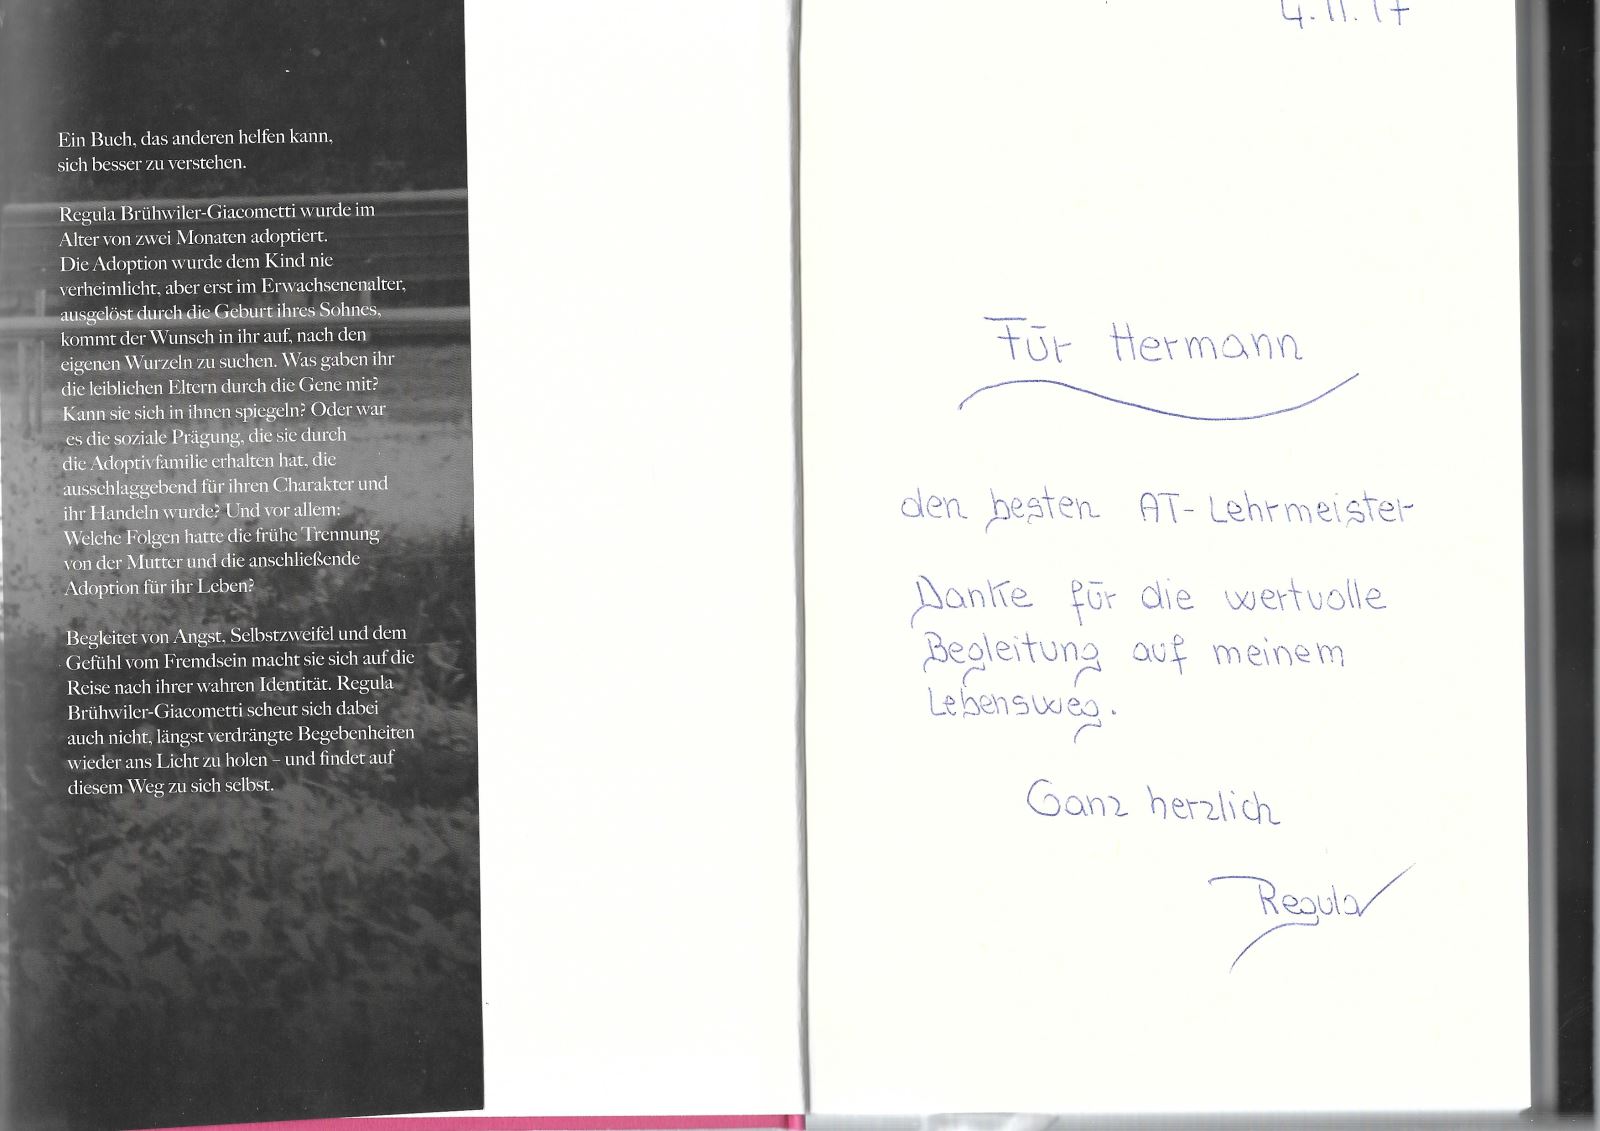 Ein Buch, das anderen helfen kann,
sich besser zu verstehen.
Regula Brühwiler-Giacometti wurde im
Alter von zwei Monaten adoptiert.
Die Adoption wurde dem Kind nie
verheimlicht, aber erst im Erwachsenenalter,
ausgelöst durch die Geburt ihres Sohnes,
kommt der Wunsch in ihr auf, nach den
eigenen Wurzeln zu suchen. Was gaben ihr
die leiblichen Eltern durch die Gene mit?
Kann sie sich in ihnen spiegeln? Oder war
es die soziale Prägung, die sie durch
die Adoptivfamilie erhalten hat, die
ausschlaggebend für ihren Charakter und
ihr Handeln wurde? Und vor allem:
Welche Folgen hatte die frühe Trennung
von der Mutter und die anschließende
Adoption für ihr Leben?
Begleitet von Angst, Selbstzweifel und dem
Gefühl vom Fremdsein macht sie sich auf die
Reise nach ihrer wahren Identität. Regula
Brühwiler-Giacometti scheut sich dabei
auch nicht, längst verdrängte Begebenheiten
wieder ans Licht zu holen – und findet auf
diesem Weg zu sich selbst.
4.11.17
Für Hermann
den besten AT-Lehrmeister
Danke für die wertvolle
Begleitung auf meinem
Lebensweg.
Ganz herzlich
Regula